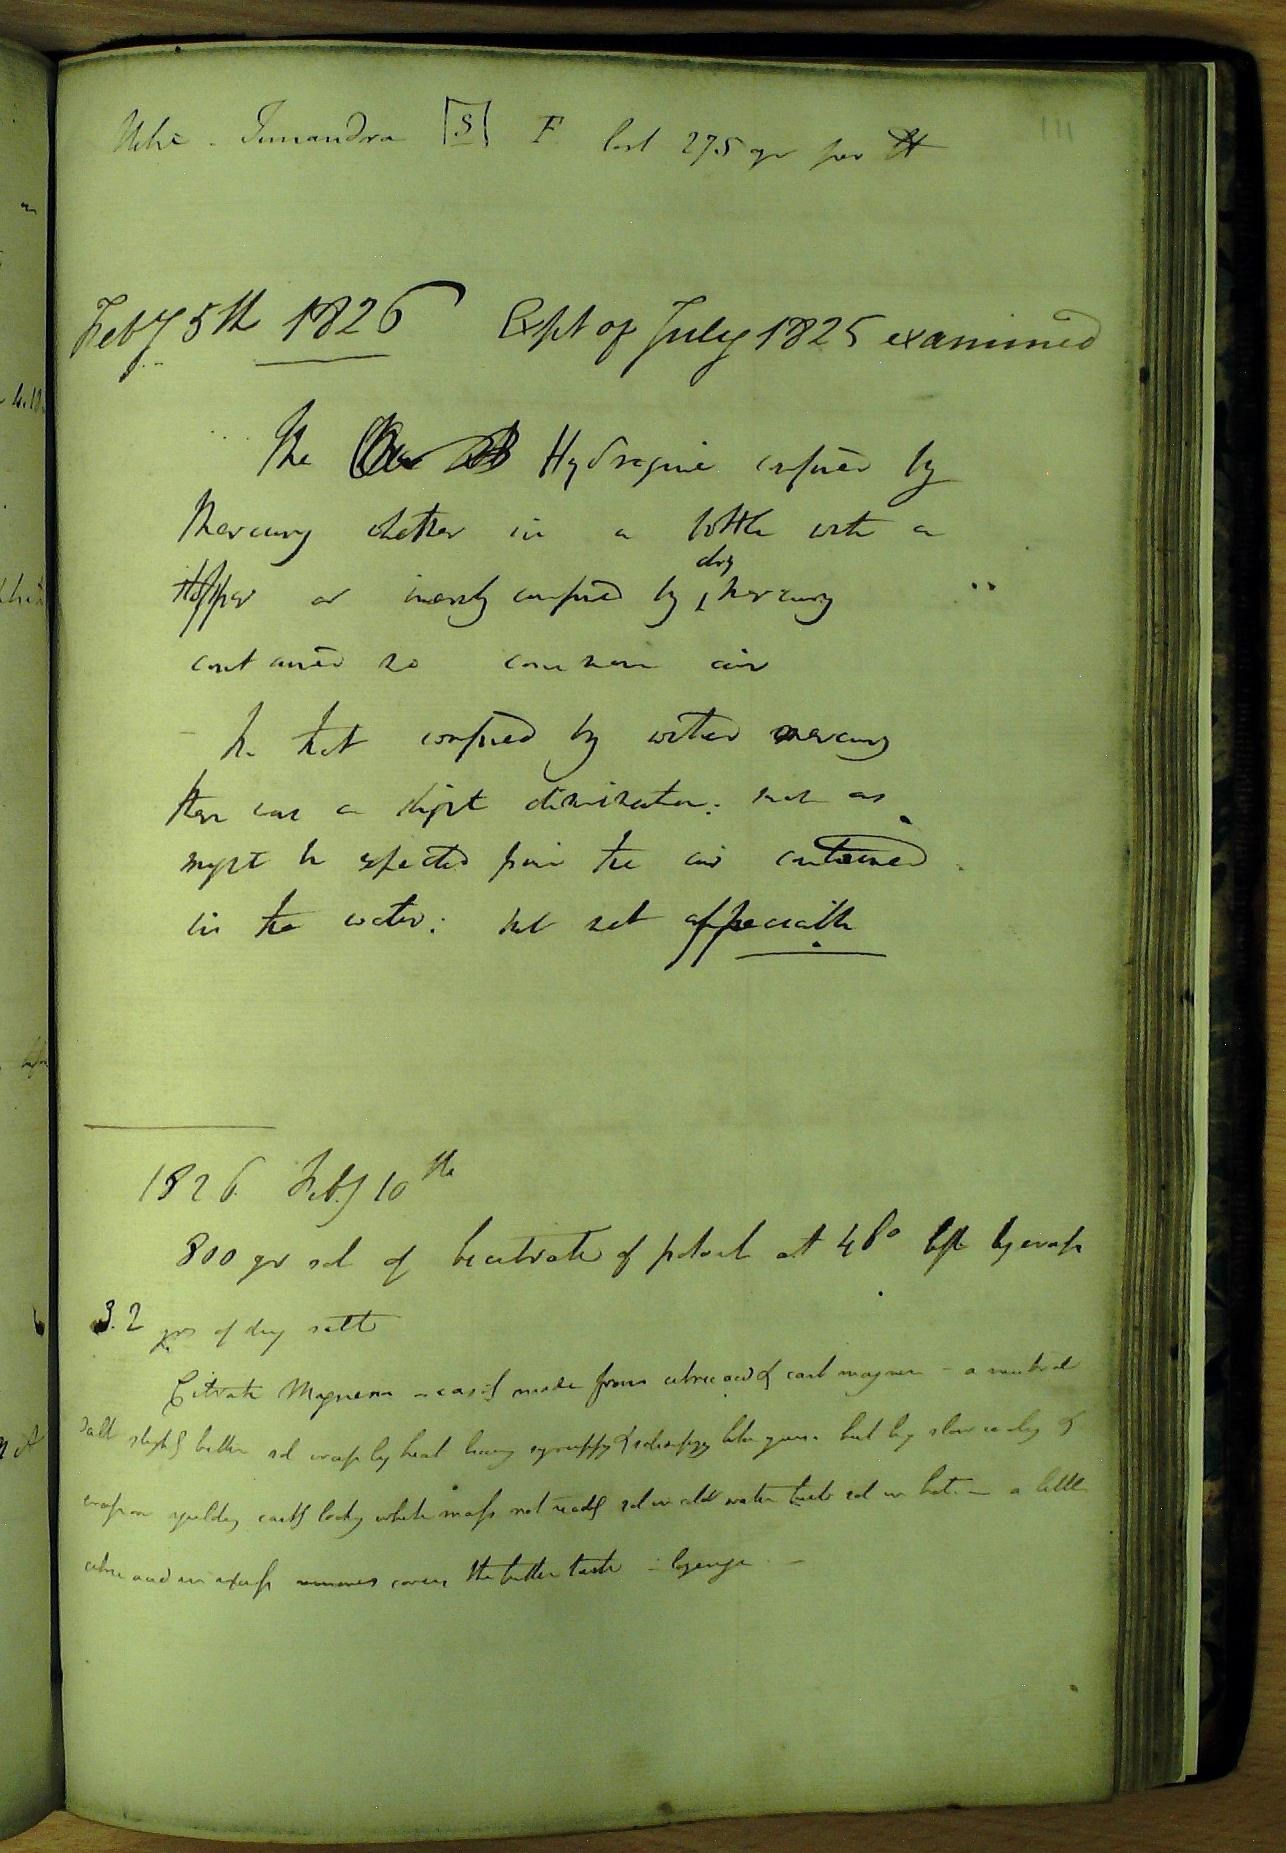 111
Nitre . Timandra [S] F lost 27.5 gr per lb
Feby 5th 1826 Expt of July 1825 examined
The Hydrogene confined by
Mercury whether in a bottle with a
stopper or merely confined by dry mercury
contained no common air
In that confined by water mercury
there was a slight diminution: such as
might be expected from the air contained
in the water: but not appreciable
1826. Feby 10th
800 gr sol of bicitrate of potash at 48° left by evap
3.2 grs of dry salt
Citrate Magnesia easily made from citric acid & carb magnesia - a neutral
salt slightly bitter sol evap by heat being syrupy & like gum but by slow cooling &
evapon yielding white mass not readily sol in cold water but sol in hot - a little
citric acid in excess covers the bitter taste - lozenge -